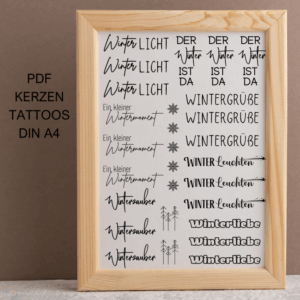 PDF
KERZEN
TATTOOS
DIN A4
Winter LICHT
Winter LICHT
Winter LICHT
DER
Winter
IST
DA
DER
Winter
IST
DA
DER
Winter
IST
DA
Ein kleiner
Wintermoment
Ein kleiner
Wintermoment
Ein kleiner
Wintermoment
WINTERGRÜßE
WINTERGRÜßE
WINTERGRÜßE
WINTER Leuchten
WINTER Leuchten
WINTER Leuchten
Winterzauber
Winterzauber
Winterzauber
Winterliebe
Winterliebe
Winterliebe